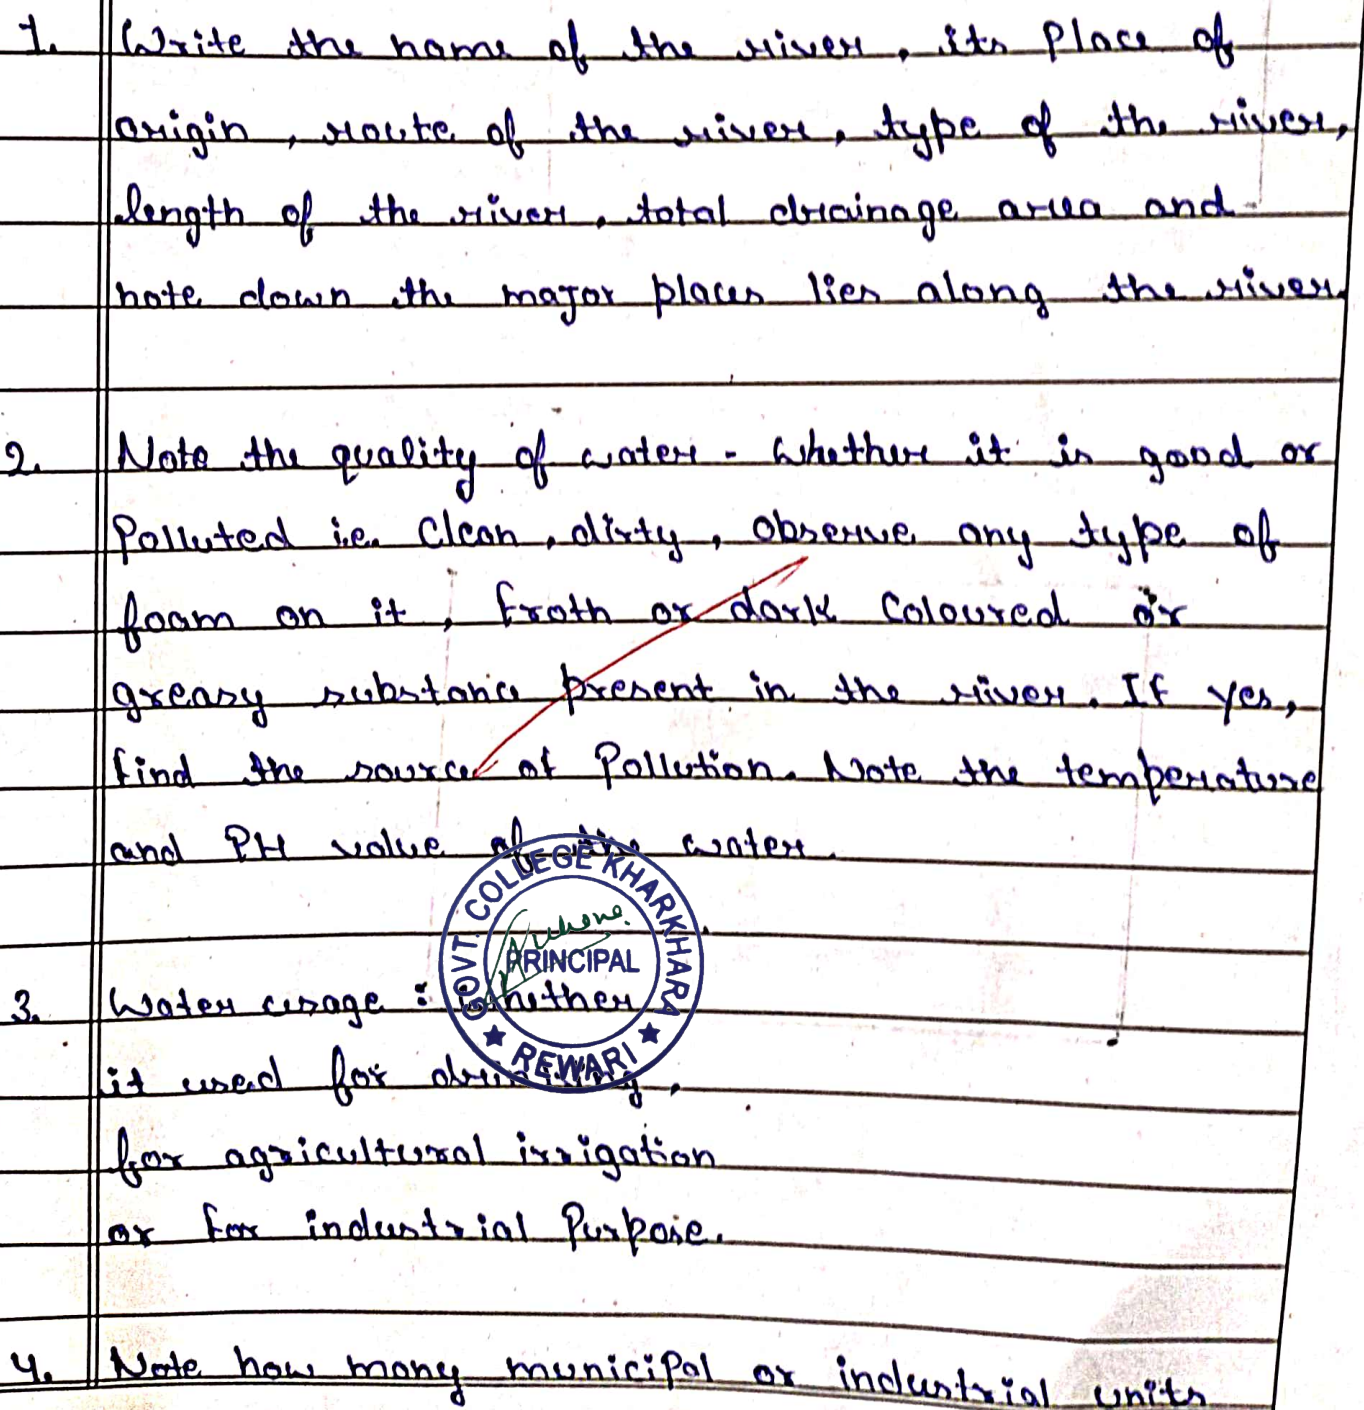 1. Write the name of the river, its Place of
origin, route of the river, type of the river,
length of the river, total drainage area and
note down the major places lies along the river.
2. Note the quality of water - Whether it is good or
Polluted i.e. Clean, dirty, Observe any type of
foam on it, froth or dark Coloured or
greasy substance present in the river. If yes,
find the source of Pollution. Note the temperature
and PH value of the water.
GOVT. COLLEGE KHARKHARA
PRINCIPAL
★ REWARI ★
3. Water usage : Whether
it used for drinking,
for agricultural irrigation
or for industrial Purpose.
4. Note how many municipal or industrial units